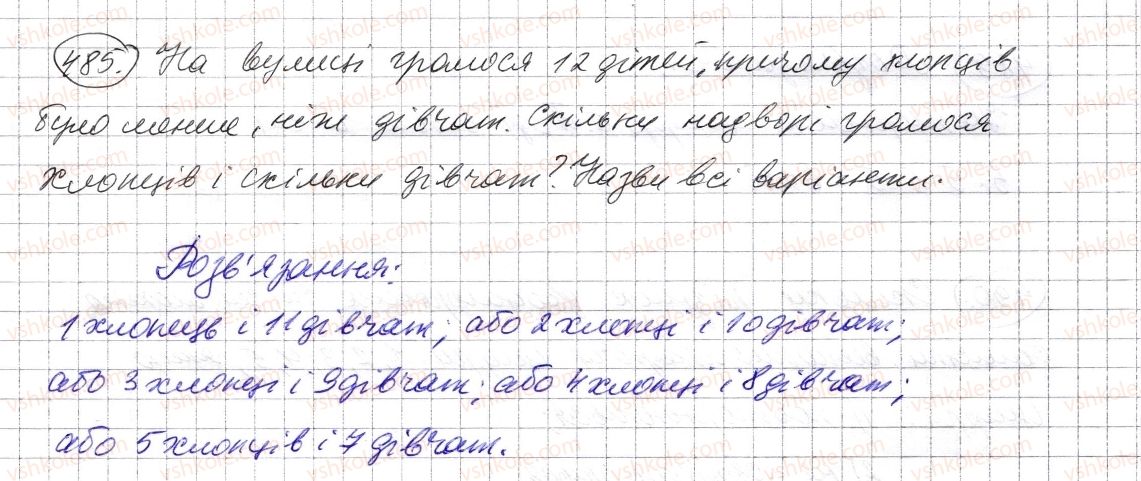 485. На вулиці гралося 12 дітей, причому хлопців
було менше, ніж дівчат. Скільки надворі гралося
хлопців і скільки дівчат? Назви всі варіанти.
Розв'язання:
1 хлопець і 11 дівчат; або 2 хлопці і 10 дівчат;
або 3 хлопці і 9 дівчат; або 4 хлопці і 8 дівчат;
або 5 хлопців і 7 дівчат.